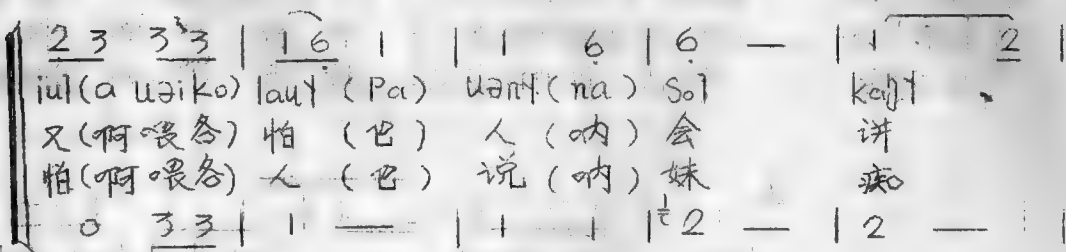 2 3 3 3 | 1 6 1 | 1 6 | 6 — | 1 2 |
iu˥(a uəiko) lau˦ (Pa) uən˦ (na) so˥ kaŋ˦
又(啊喂各) 怕 (巴) 人 (呐) 会 讲
怕(啊喂各) 人 (巴) 说 (呐) 妹 痴。
0 3 3 | 1 — | 1 1 | 2 — | 2 — |